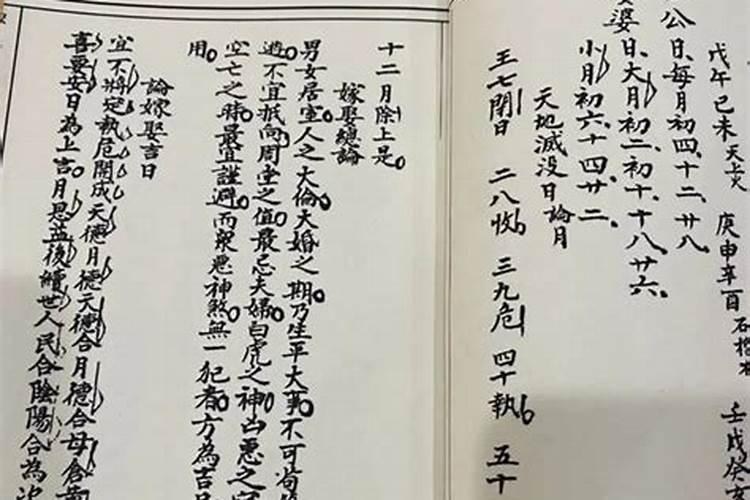 戊午己未天上火 庚申辛酉石榴木 壬戌癸
公日每月初四十二廿八
婆日大月初二初十十八廿六
小月初六十四廿二
天地滅没日論月
王七閉日 二八收 三九危 四十執 五十
十二月除上是
嫁娶總論
男女居室人之大倫大婚之期乃生平大事不可苟
避不宜抵向周堂之值最忌夫婦白虎之神凶惡之
空亡之時最宜謹避而衆惡神煞無一犯者方為吉
用
論嫁娶吉日
宜不將定執危開成天德月德天德合月德合母倉
喜要安日為上吉月恩益後續世人民合陰陽合為